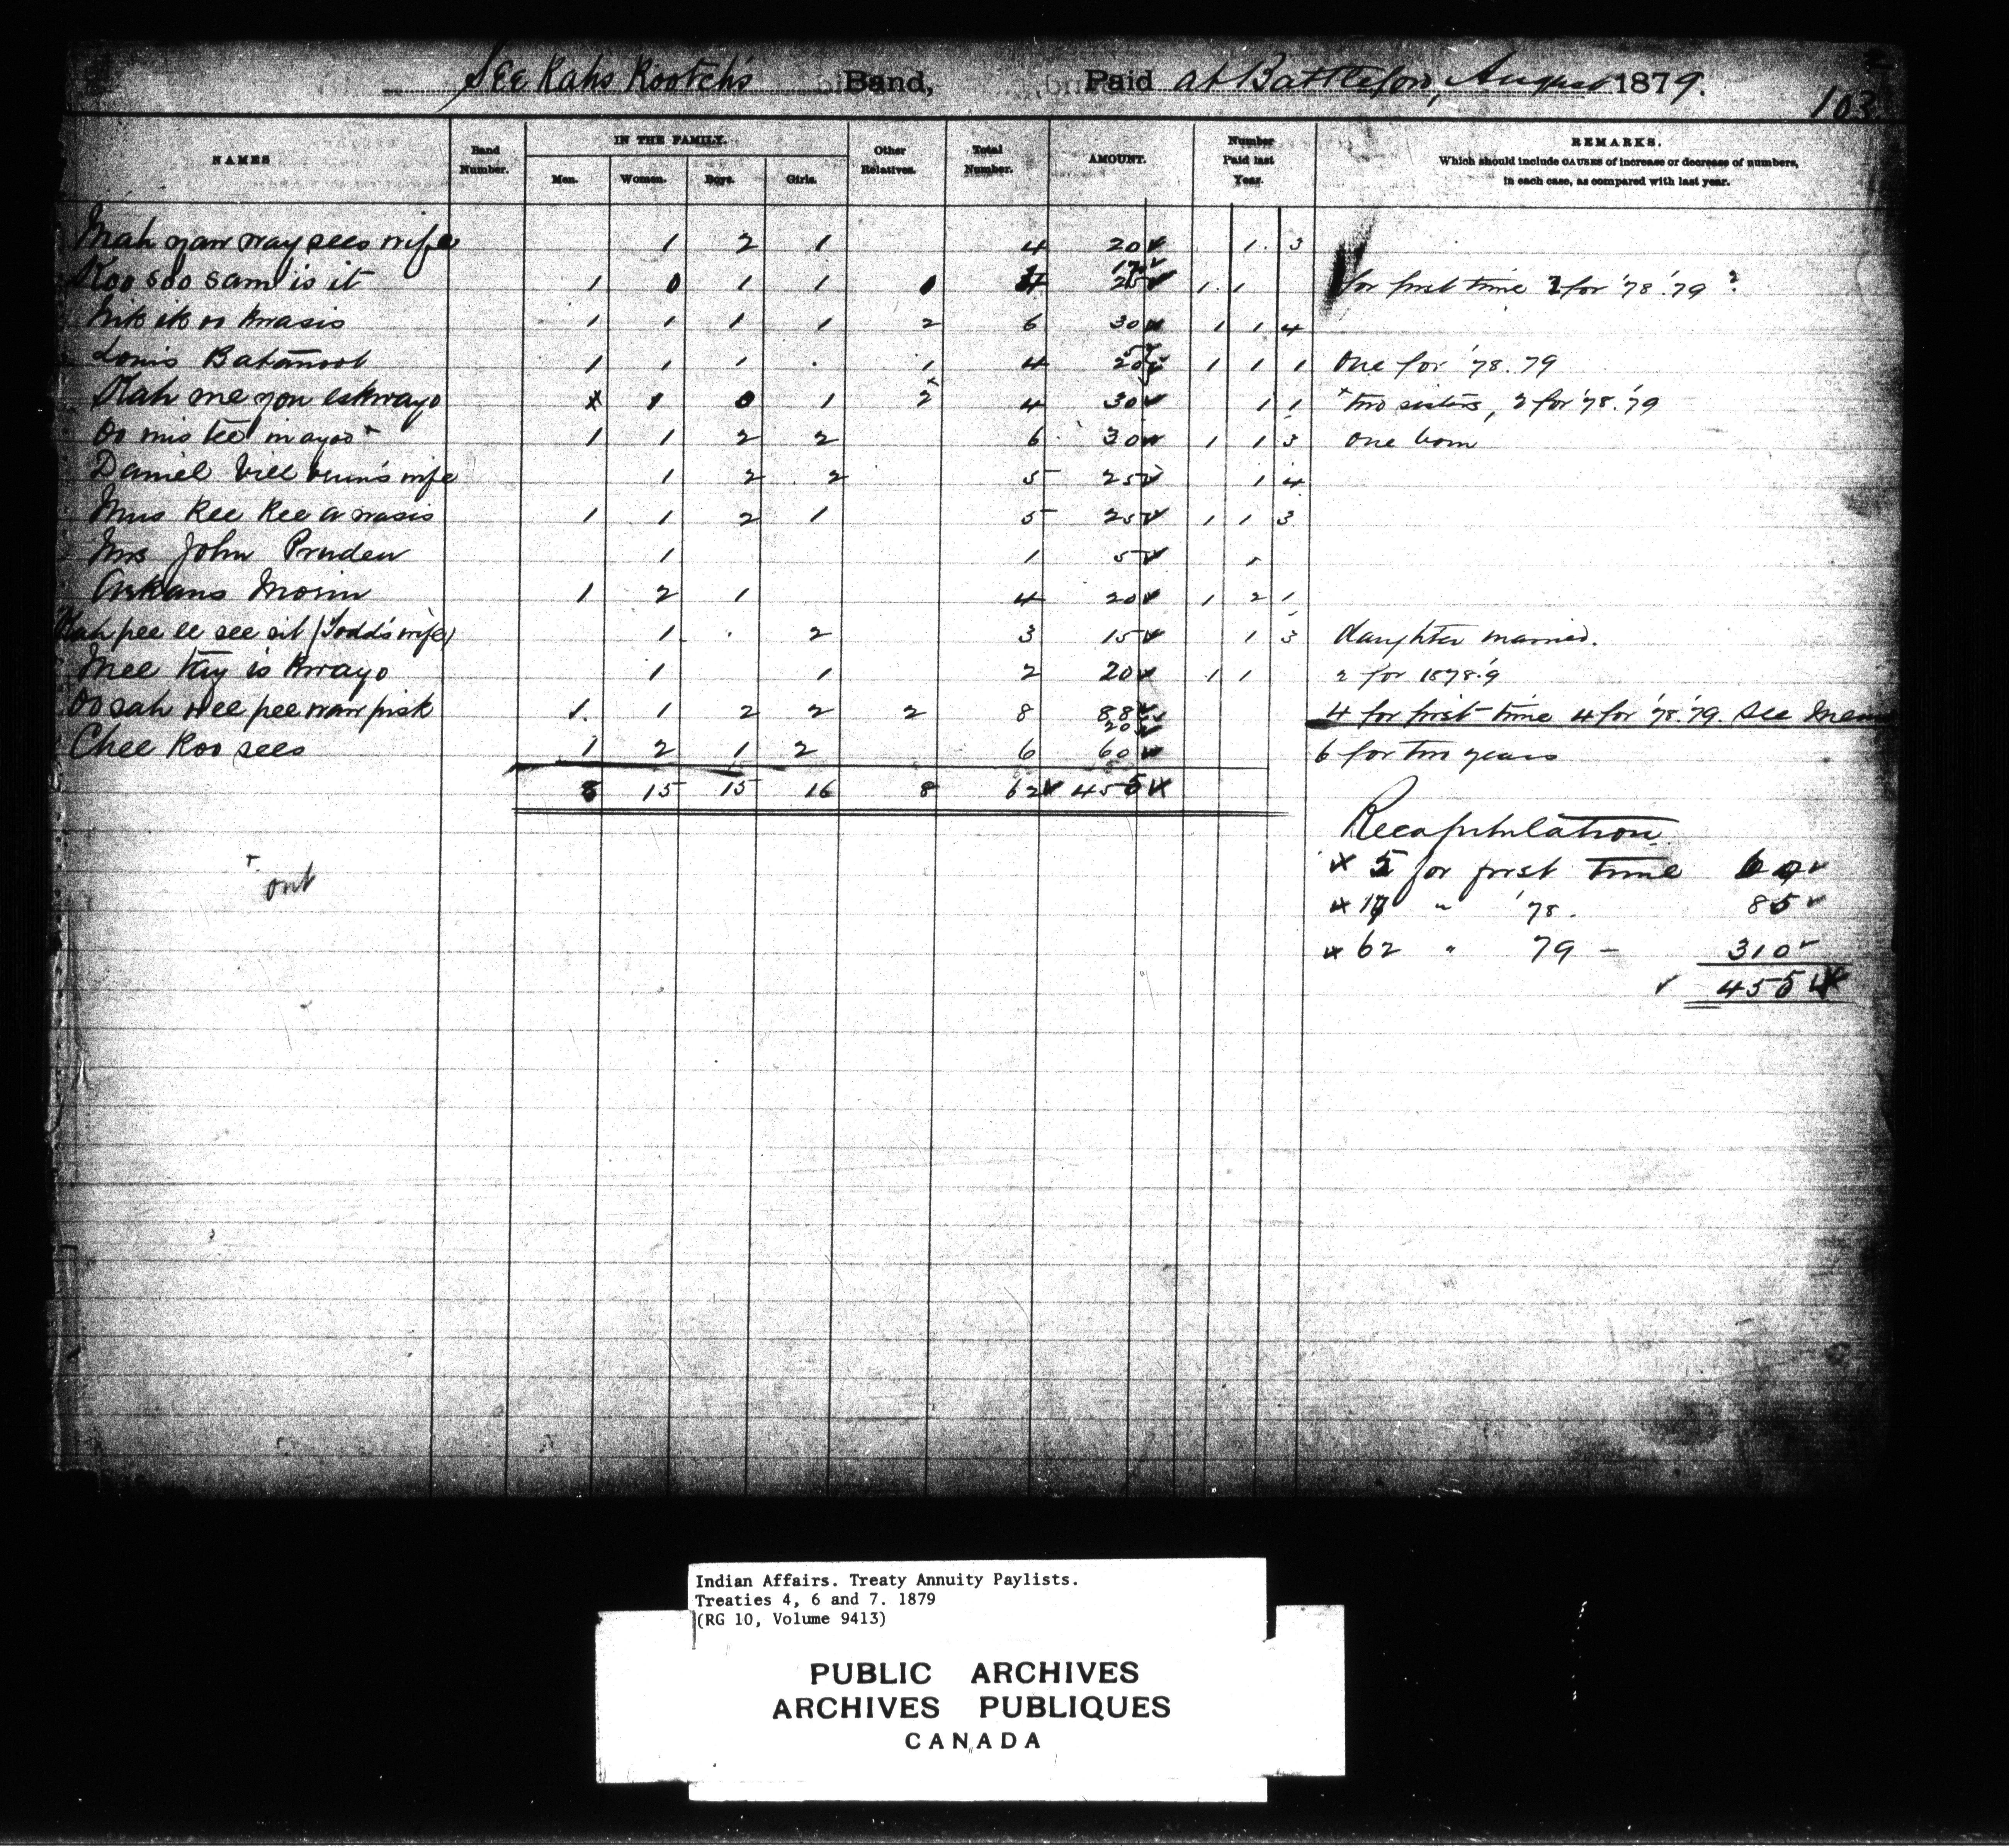 See Kahs Kootch's Band, Paid at Battleford, August 1879.
103
NAMES Band Number. IN THE FAMILY. Men. Women. Boys. Girls. Other Relatives. Total Number. AMOUNT. Number Paid last Year. REMARKS.
Which should include CAUSES of increase or decrease of numbers,
in each case, as compared with last year.
Mah yaw way sees wife 1 2 1 4 20 1 3
Koo soo sam is it 1 0 1 1 0 1 1 for first time 2 for '78.'79
Kik ik oo kwasis 1 1 1 1 2 6 30 1 1 4
Louis 1 1 1 1 4 20 1 1 1 One for '78.79
Kah me you eskwayo 0 1 2 4 30 1 1 two sisters, 2 for '78.'79
Oo mis tee in ayoo 1 1 2 2 6 30 1 1 3 one born
Daniel Vill brun's wife 1 2 2 5 25 1 4
Mus Kee Kee a wasis 1 1 2 1 5 25 1 1 3
Mrs John Pruden 1 1 5 1
Arkans Morin 1 2 1 4 20 1 2 1
Kah pee ee see sit (Todd's wife) 1 2 3 15 1 3 daughter married.
Mee Kay is kwayo 1 1 2 20 1 1 2 for 1878.9
Oo sah wee pee waw pisk 1 1 2 2 2 8 88 20 4 for first time 4 for '78.'79. See
Chee Koo sees 1 2 1 2 6 60 6 for two years
15 15 16 8 62 455
Recapitulation
5 for first time 60
17 " '78. 85
62 " 79 - 310
455
+ out
Indian Affairs. Treaty Annuity Paylists.
Treaties 4, 6 and 7. 1879
(RG 10, Volume 9413)
PUBLIC ARCHIVES
ARCHIVES PUBLIQUES
CANADA